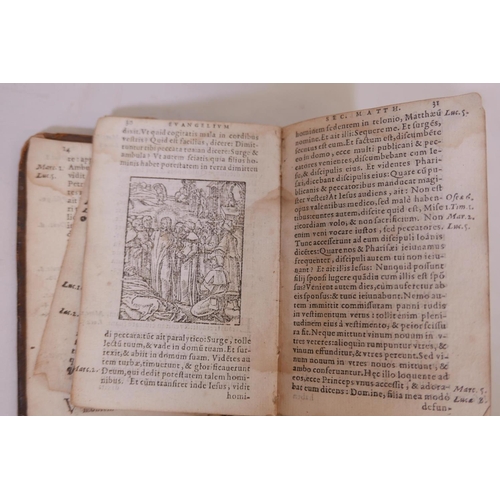 30 EVANGELIUM
dicit. Ut quid cogitatis mala in cordibus
vestris? Quid est facilius, dicere: Dimittun-
ambula? Ut autem sciatis quia filius ho-
minis habet potestatem in terra dimitten
di peccata: tūc ait paralytico: Surge, tolle
lectū tuum, & vade in domū tuam. Et sur-
rexit, & abiit in domum suam. Vidētes au
tem turbæ, timuerunt, & glorificauerunt
Marc. 2. Deum, qui dedit potestatem talem homi-
nibus. Et cūm transiret inde Iesus, vidit
homi-
SEC. MATTH. 31
hominem sedentem in telonio, Matthæū Luc. 5.
nomine. Et ait illi: Sequere me. Et surgēs,
secutus est eum. Et factum est, discumbēte
eo in domo, ecce multi publicani & pec-
catores venientes, discumbebant cum Ie-
su, & discipulis eius. Et videntes Phari-
sæi, dicebant discipulis eius: Quare cū pu-
blicanis & peccatoribus manducat magis-
ter vester? At Iesus audiens, ait: Non est
opus valentibus medico, sed malè haben- Osee 6.
tibus: euntes autem, discite quid est, Mise 1. Tim. 1.
ricordiam volo, & non sacrificium. Non Mar. 2.
enim veni vocare iustos, sed peccatores. Luc. 5.
Tunc accesserunt ad eum discipuli Ioānis:
dicētes: Quare nos & Pharisæi ieiunamus
frequenter, discipuli autem tui non ieiu-
nant? Et ait illis Iesus: Nunquid possunt
filii sponsi lugere quādiu cum illis est spō
sus? Venient autem dies, cùm auferetur ab
eis sponsus: & tunc ieiunabunt. Nemo au-
tem immittit commissuram panni rudis
in vestimentum vetus: tollit enim pleni-
tudinem eius à vestimento, & peior scissu
ra fit. Neque mittunt vinum nouum in v-
tres veteres: alioquin rumpuntur vtres, &
vinum effunditur, & vtres pereunt. Sed vi-
num nouum in vtres nouos mittunt: &
ambo conseruantur. Hęc illo loquente ad
eos, ecce Princeps vnus accessit, & adora- Marc. 5.
bat eum dicens: Domine, filia mea modò Lucæ 8.
defun-